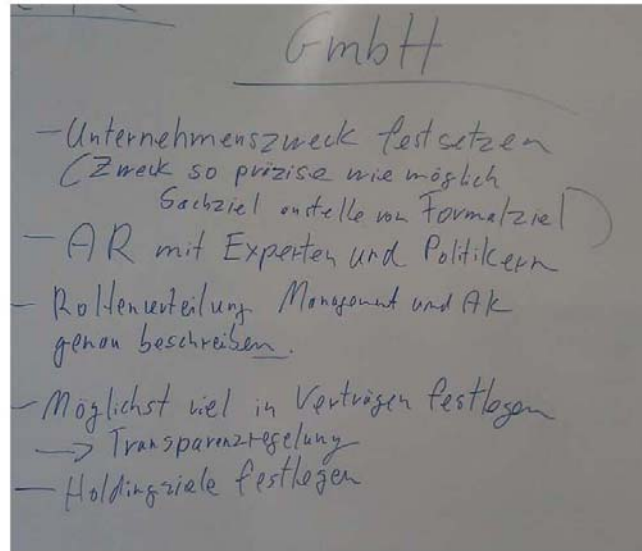 GmbH
– Unternehmenszweck festsetzen
(Zweck so präzise wie möglich
Sachziel anstelle von Formalziel)
– AR mit Experten und Politikern
– Rollenverteilung Management und AR
genau beschreiben.
– Möglichst viel in Verträgen festlegen
–> Transparenzregelung
– Holdingziele festlegen